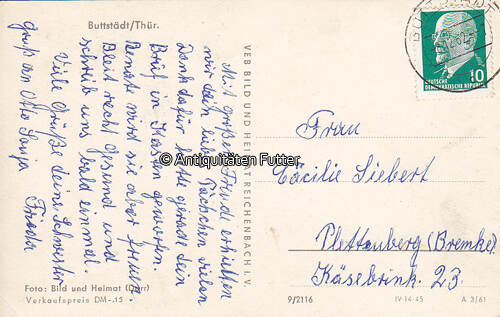 Buttstädt/Thür.
Mit großer Freud erhielten
wir dein liebes Päckchen vielen
Dank dafür hatte gerade dein
Brief in Kasten geworfen.
Renate wird sie aber freuen.
Bleib recht Gesund und
schreib uns bald einmal.
Viele Grüße deine Schwester
Frieda
Gruß an Otto Sonja
Foto: Bild und Heimat (Darr)
Verkaufspreis DM -.15
VEB BILD UND HEIMAT REICHENBACH I. V.
DEUTSCHE
DEMOKRATISCHE REPUBLIK
10
Frau
Cäcilie Siebert
Plettenberg (Bremke)
Käsebrink 23.
9/2116
IV-14-45
A 3/61
© Antiquitäten Futter